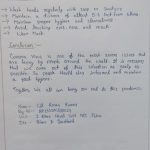 → Wash hands regularly with soap or Sanitizer
→ Maintain a distance of atleast 5-6 feet from others
→ Maintain proper hygiene and cleanliness
→ Avoid touching eyes, nose and mouth
→ Wear Mask
Conclusion :-
Corona Virus is one of the most severe issues that
are being by people around the world. It is necessary
that we come out of this situation as early as
possible. So people should stay informed and maintain
a good hygiene.
Together We all can bring an end to this pandemic.
Name :
Reg No :